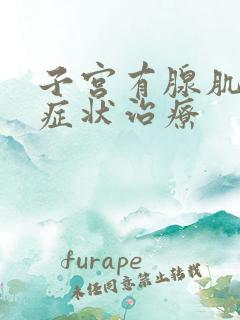 子宫有腺肌
症状治疗
furape
未经同意禁止转载